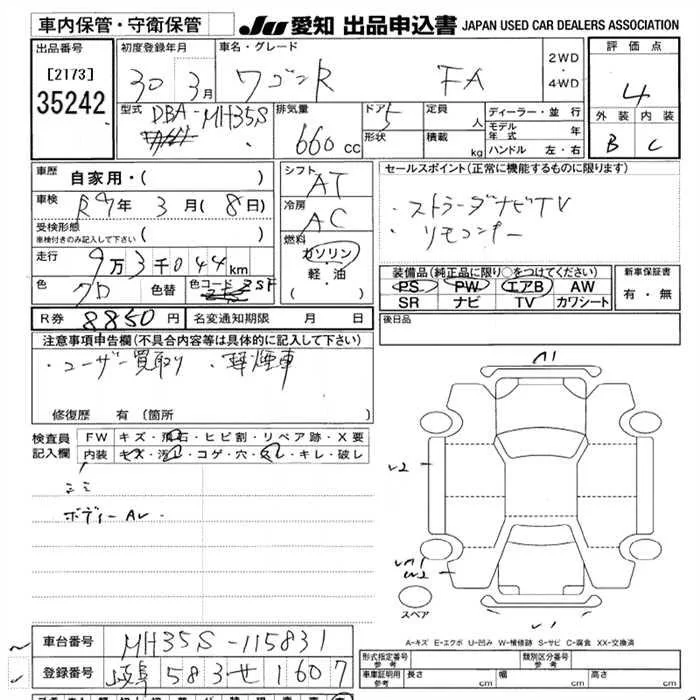 車内保管・守衛保管
JU 愛知 出品申込書 JAPAN USED CAR DEALERS ASSOCIATION
出品番号
[2173]
35242
初度登録年月
30 3月
車名・グレード
ワゴンR FA
2WD
・
4WD
評価点
4
外装 内装
B C
型式
DBA-MH35S
排気量
660cc
ドア 5
形状
定員 人
積載 kg
ディーラー・並行
モデル年式 年
ハンドル 左・右
車歴 自家用・( )
車検 R7年 3月(8日)
受検形態
車検付きのみ記入して下さい
走行 9万3千044km
色
色替
色コード ZSF
R券 8850円 名変通知期限 月 日
シフト
AT
冷房
AC
燃料
ガソリン
・
軽・油
・( )
セールスポイント(正常に機能するものに限ります)
・ストラーダナビTV
・リモコンキー
装備品(純正品に限り○をつけてください)
PS PW エアB AW
SR ナビ TV カワシート
新車保証書
有・無
後日品
注意事項申告欄(不具合内容等は具体的に記入して下さい)
・ユーザー買取り ・禁煙車
修復歴 有(箇所
検査員記入欄
FW キズ・飛石・ヒビ割・リペア跡・X要
内装 キズ・汚れ・コゲ・穴・スレ・キレ・破レ
ミミ
ボディーAv
スペア
A-キズ E-エクボ U-凹み W-補修跡 S-サビ C-腐食 XX-交換済
車台番号 MH35S-115831
登録番号 岐阜 583 せ 1607
形式指定番号
参考
類別区分番号
参考
車庫証明用
参考
長さ cm 幅 cm 高さ cm